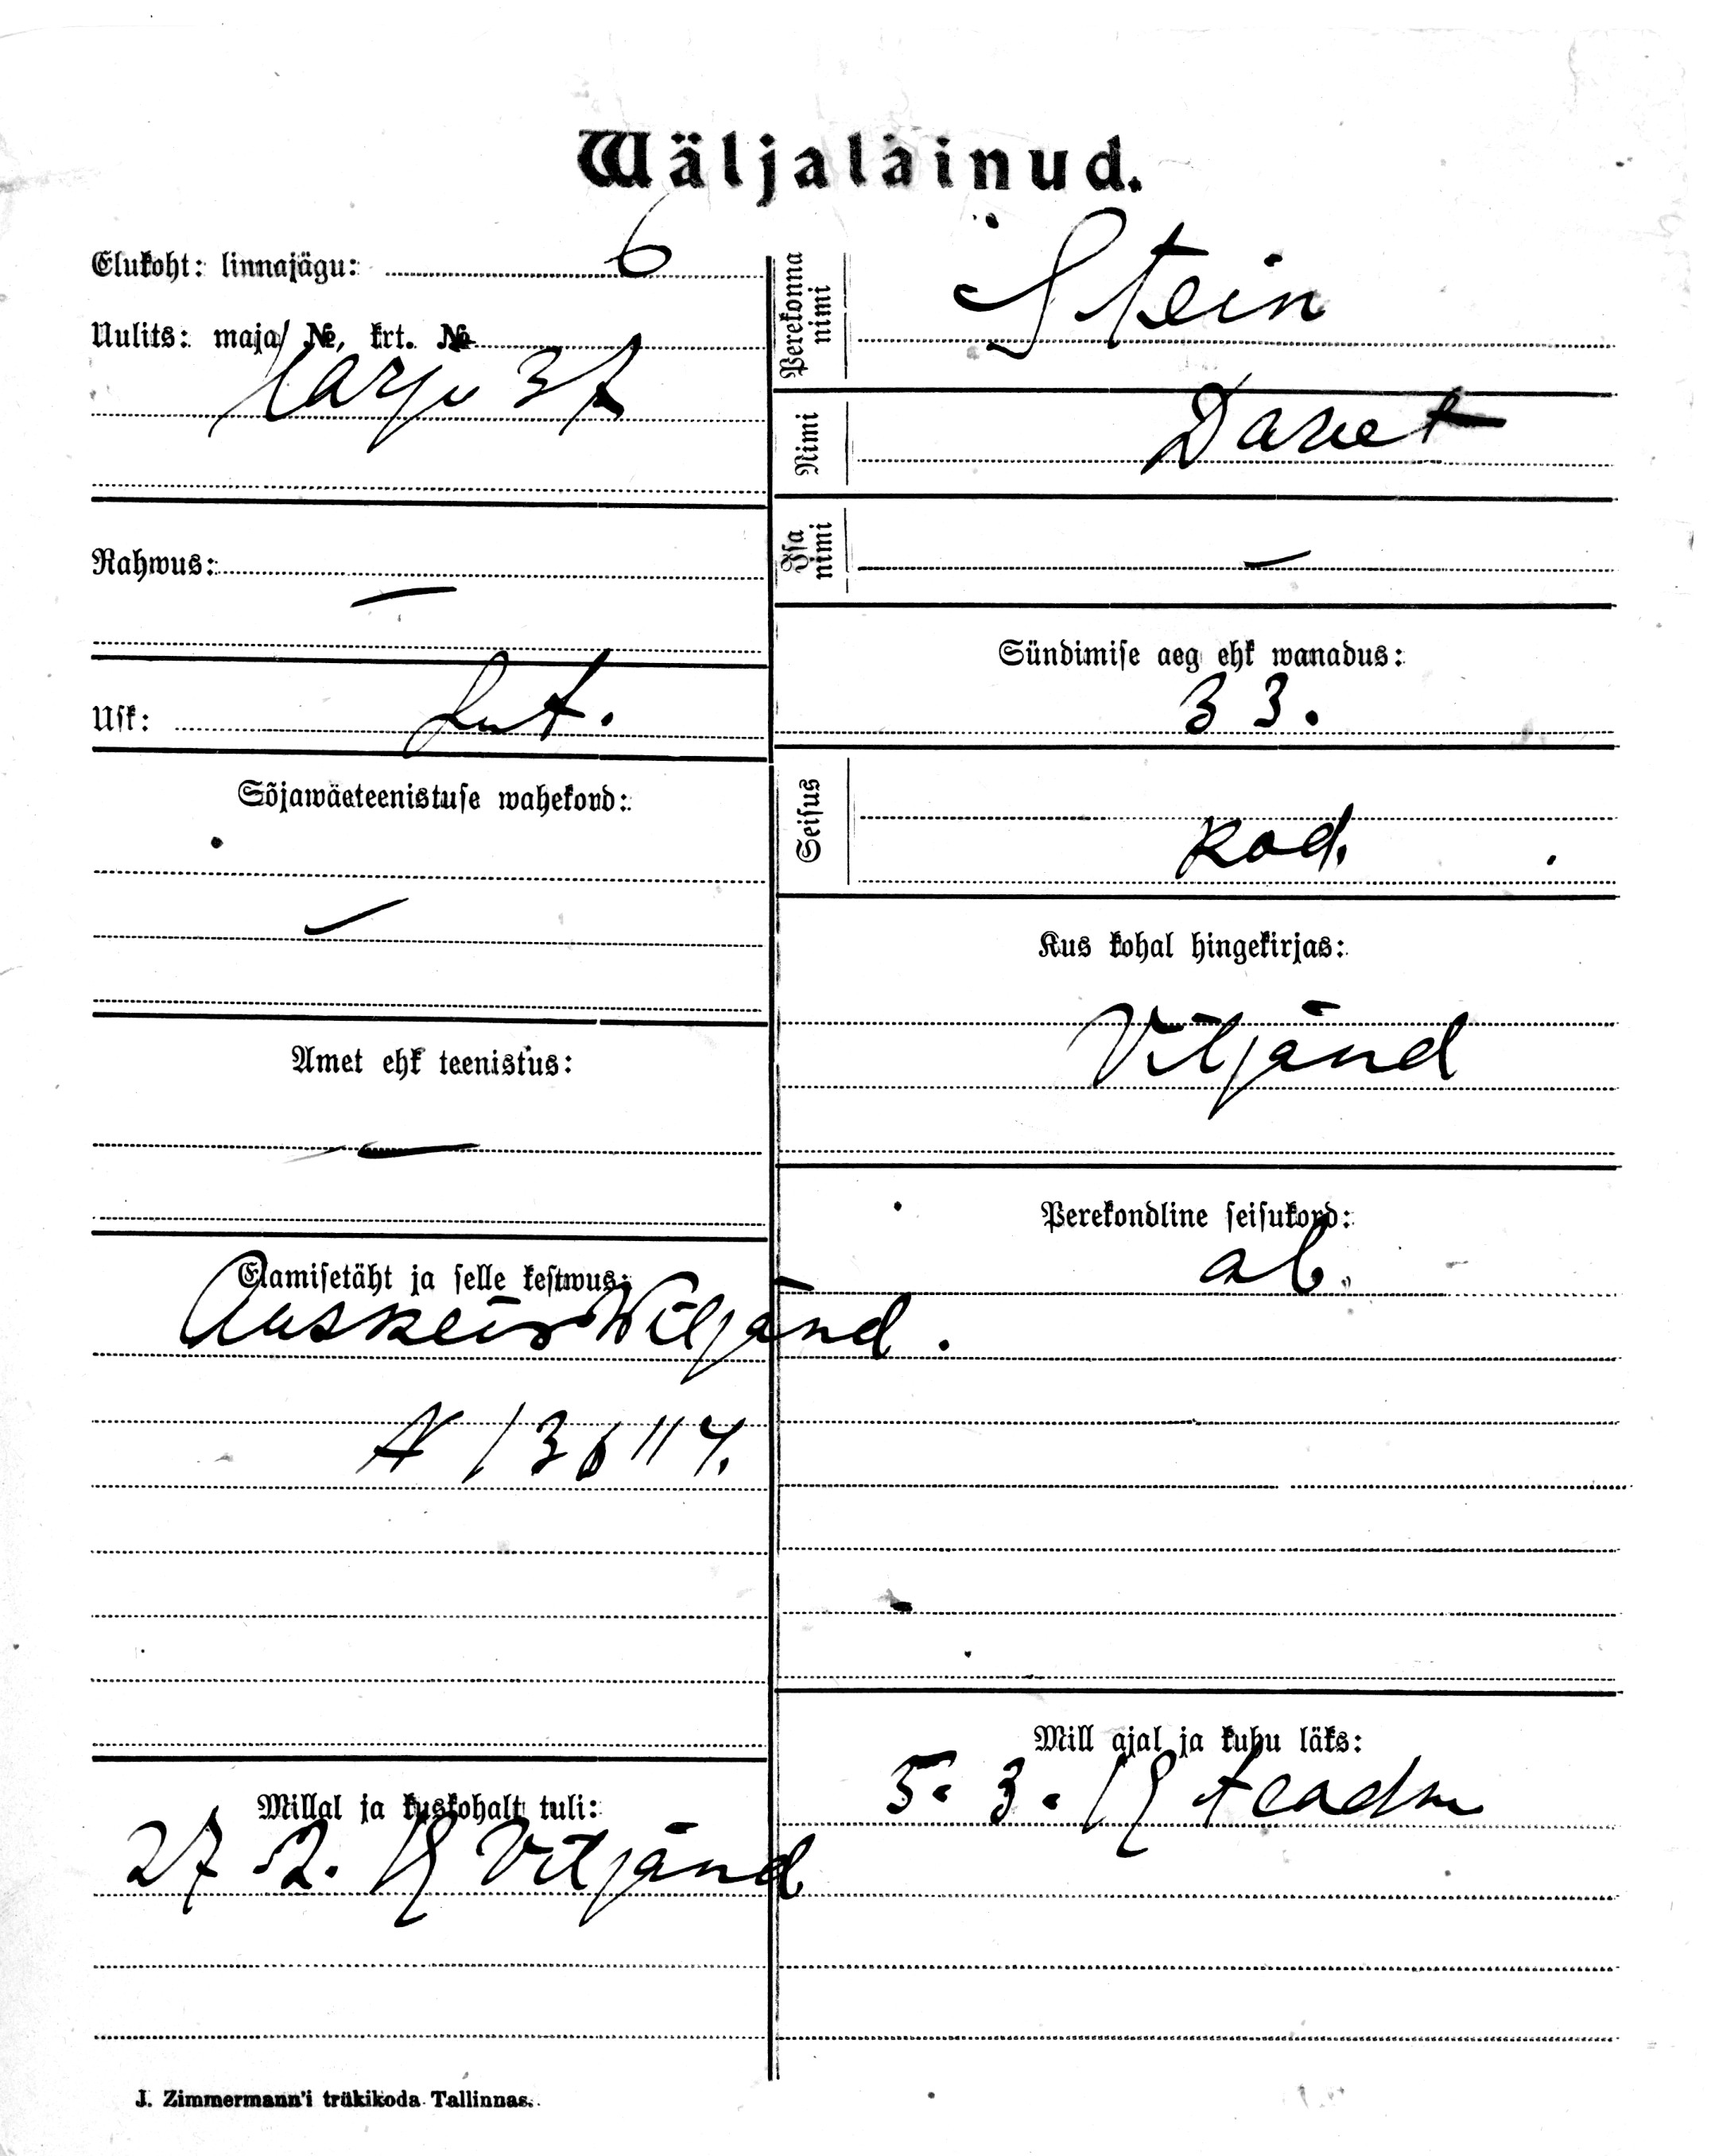 Wäljaläinud.
Elukoht: linnajägu: 6
Uulits: maja №, krt. №
Harju 37
Rahwus: —
Usk: Lut.
Sõjawäeteenistuse wahekord:
—
Amet ehk teenistus:
—
Elamisetäht ja selle kestwus:
Wiljand.
Millal ja kuskohalt tuli:
27.2.19 Viljand
J. Zimmermann'i trükikoda Tallinnas.
Perekonna nimi
Stein
Nimi
Isa nimi
—
Sündimise aeg ehk wanadus:
33.
Seisus
kod.
Kus kohal hingekirjas:
Viljand
Perekondline seisukord:
ab.
Mill ajal ja kuhu läks:
5.3.19 teadm